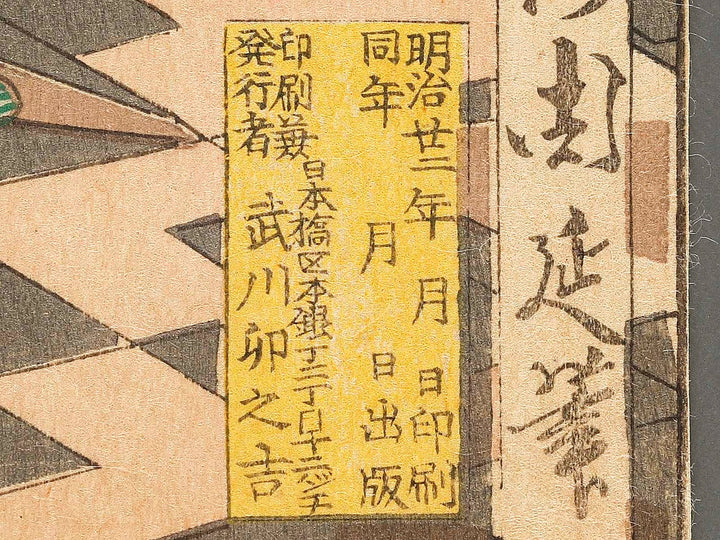 周延筆
明治廿二年 月 日印刷
同年 月 日出版
印刷兼
日本橋区本銀丁二丁目十二バンチ
発行者 武川卯之吉